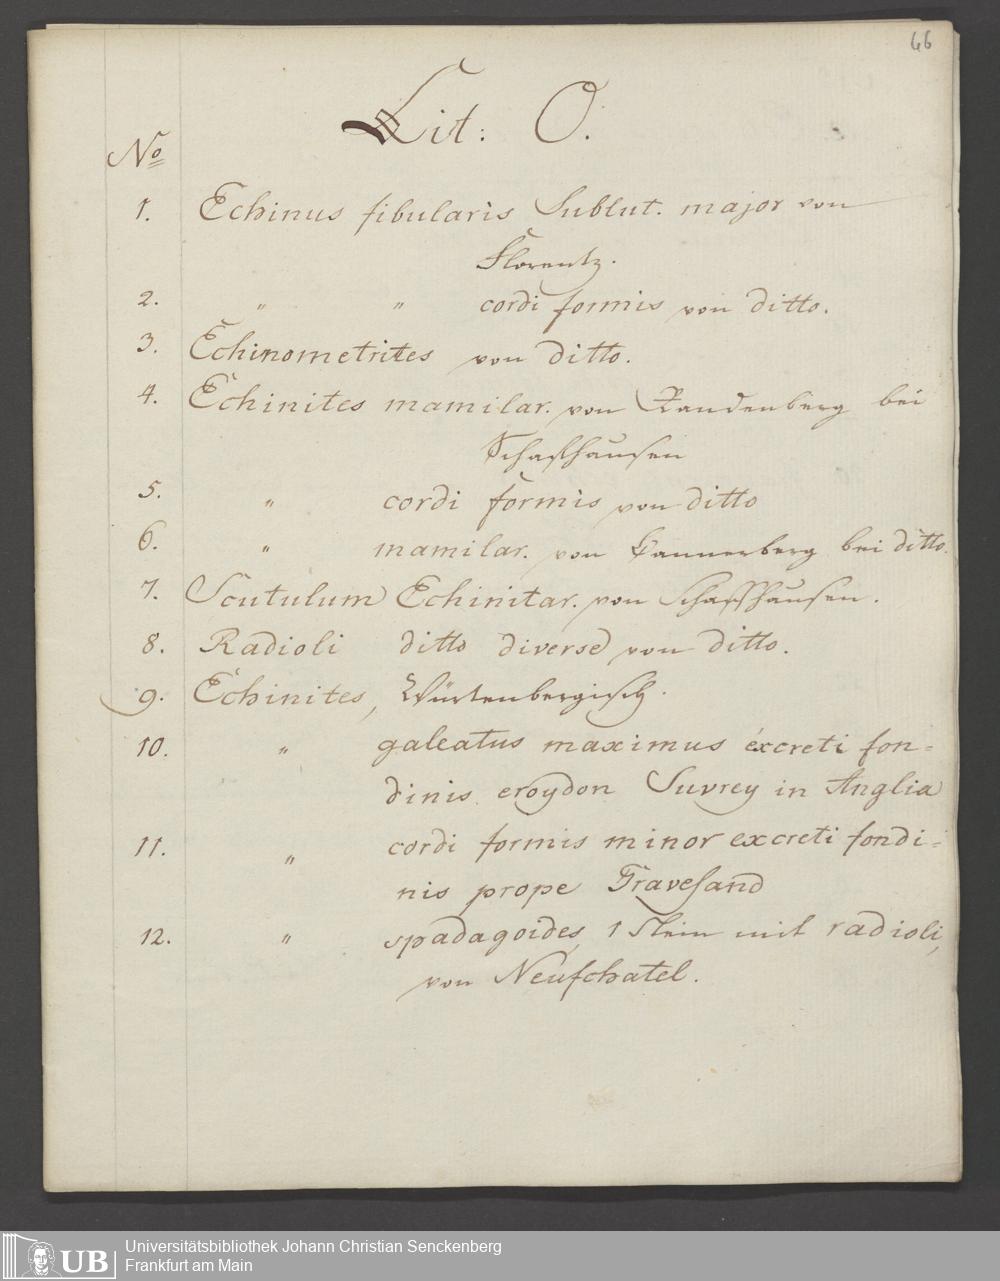 66
Lit: O.
No
1. Echinus fibularis Sublut. major von
Florentz.
2. " " cordi formis von ditto.
3. Echinometrites von ditto.
4. Echinites mamilar. von Randenberg bei
Schafhausen
5. " cordi formis von ditto
6. " mamilar. von Lannerberg bei ditto.
7. Scutulum Echinitar. von Schaffhausen.
8. Radioli ditto diverse von ditto.
9. Echinites, Würtenbergisch.
10. " galeatus maximus excreti fon=
dinis croydon Suvrey in Anglia
11. " cordi formis minor excreti fondi=
nis prope Gravesand
12. " spadagoides, 1 Stein mit radioli,
von Neufchatel.
UB
Universitätsbibliothek Johann Christian Senckenberg
Frankfurt am Main